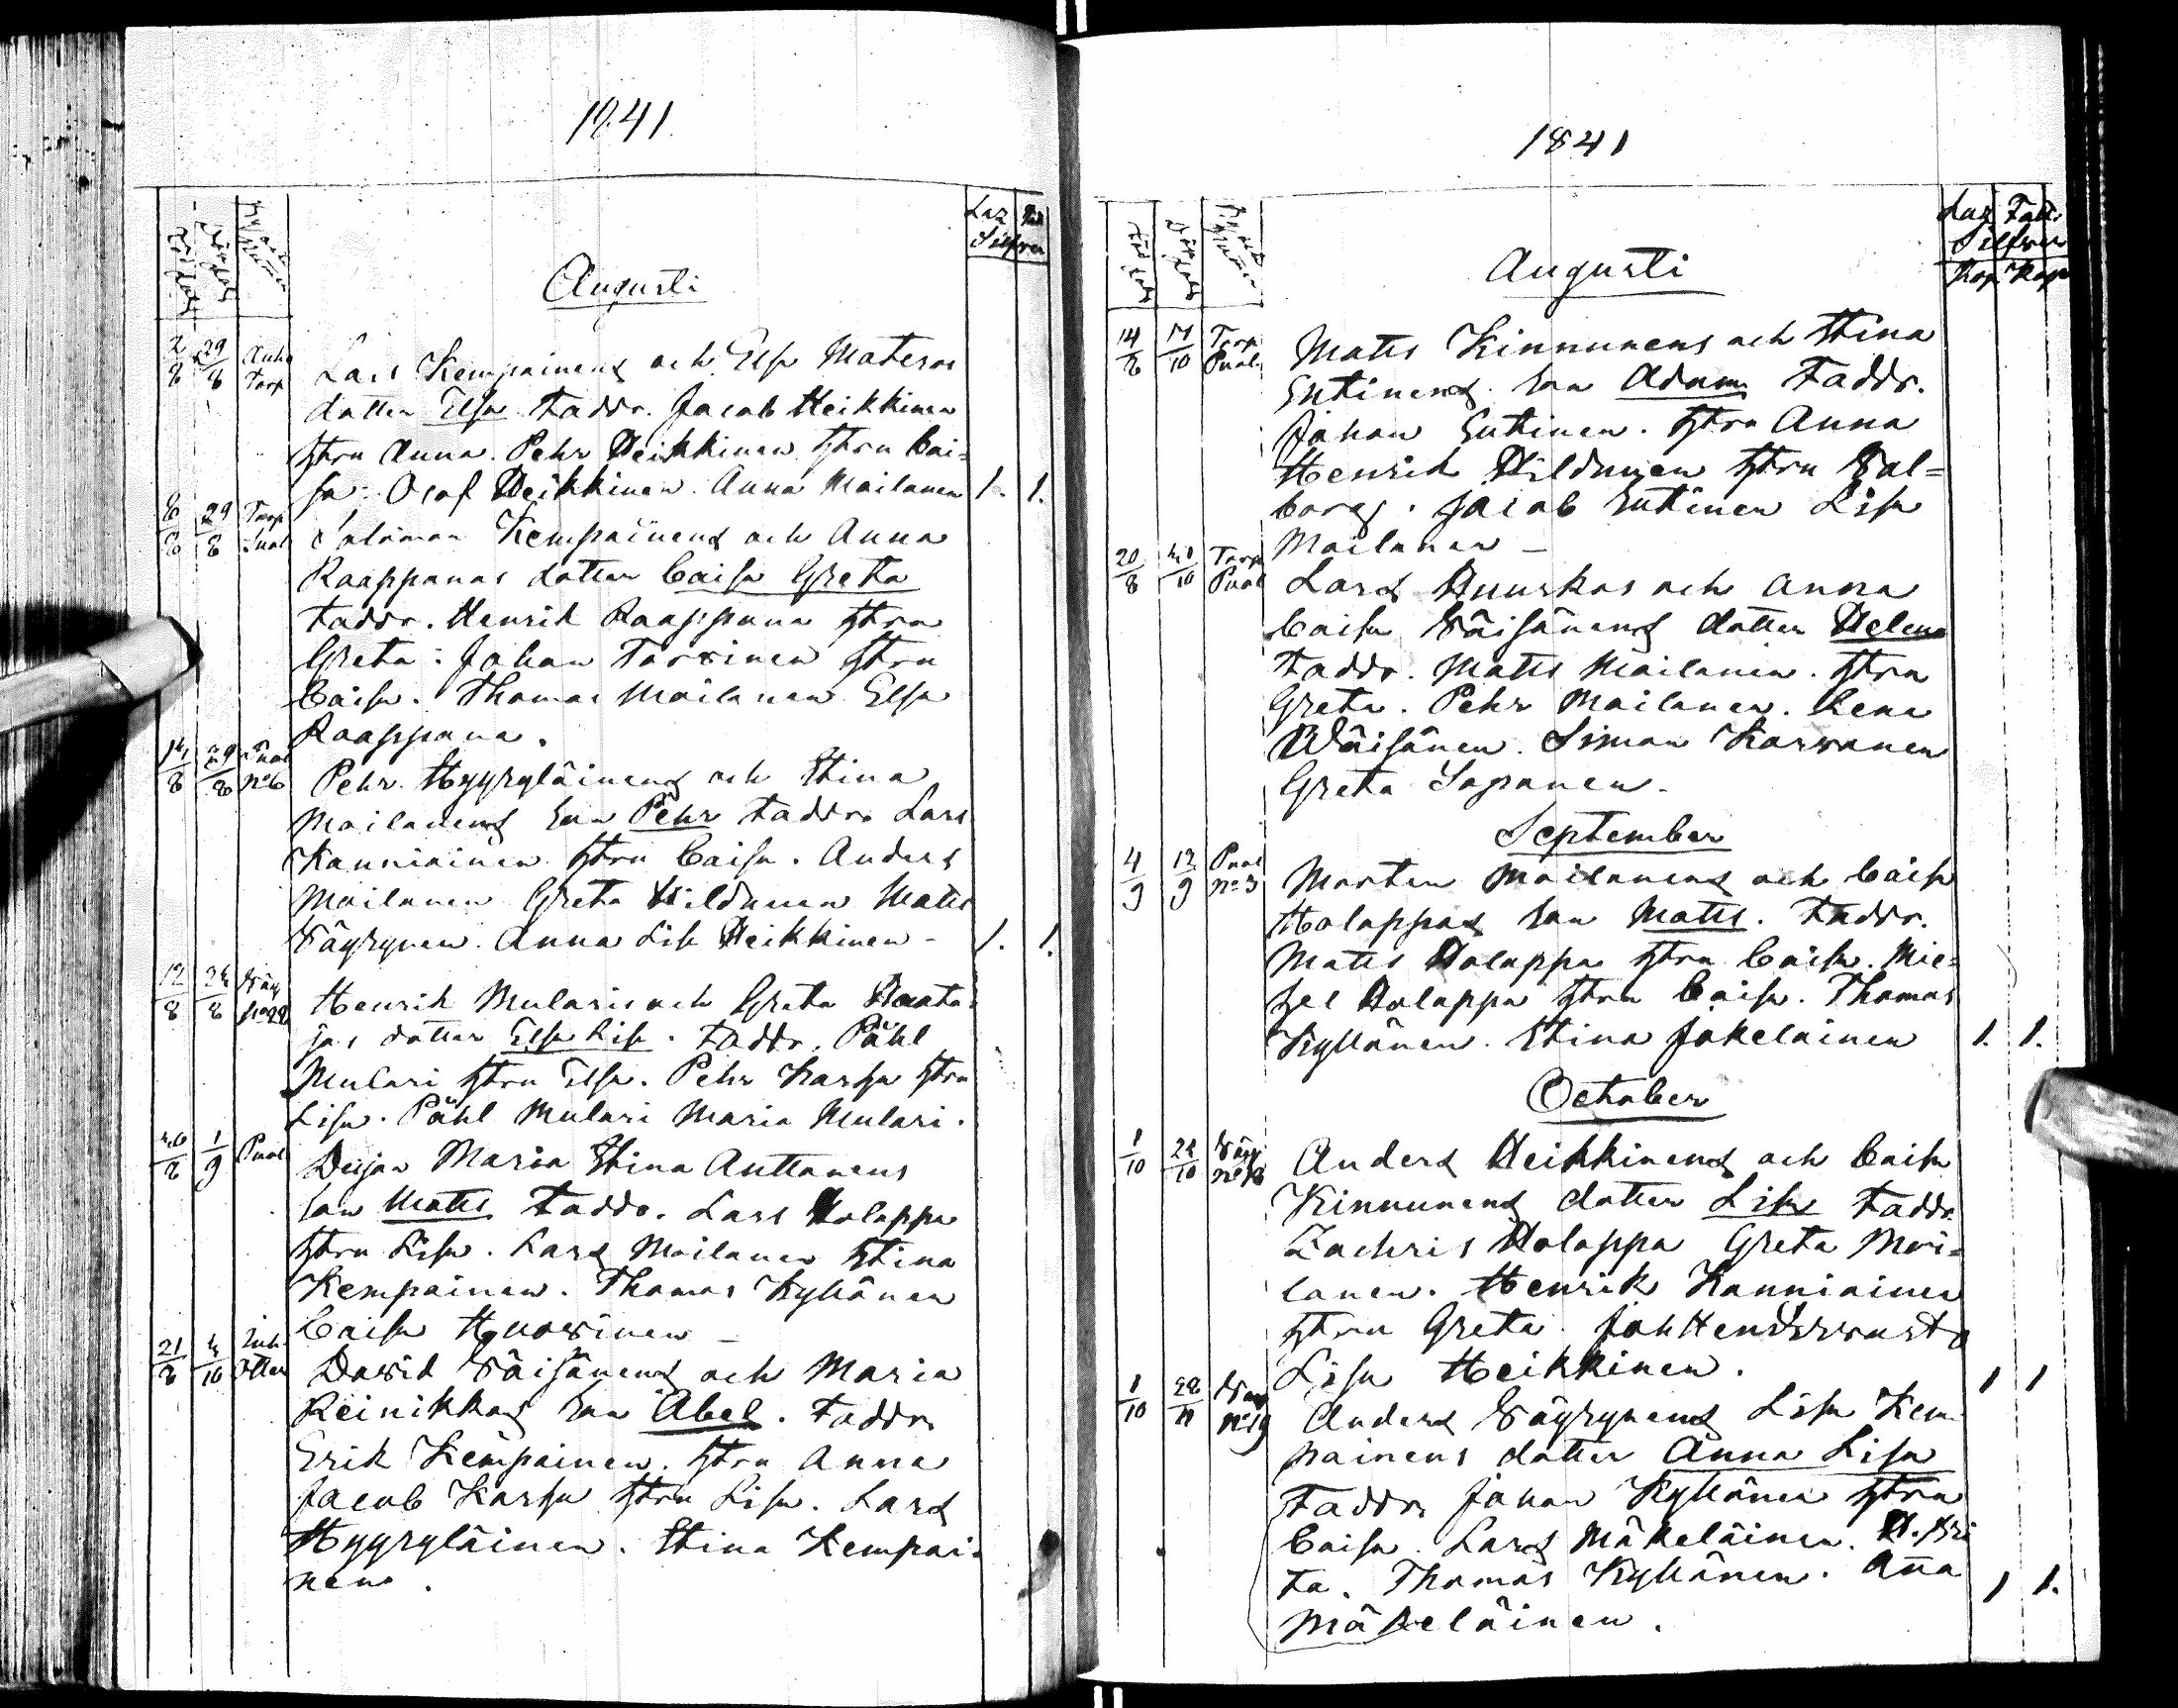 1841
Laz
Silfver
Augusti
2/8 29/8 Torp Lars Kempainens och Elsa Materos
dotter Elsa Faddr. Jacob Heikkinen
hstru Anna. Pehr Heikkinen hstru Cai=
sa. Olof Heikkinen. Anna Moilanen 1. 1.
8/8 29/8 Torp Salomon Kempainens och Anna
Raappanas dotter Caisa Greta
Faddr. Henrik Raappana hstru
Greta. Johan Torvinen hstru
Caisa. Thomas Moilanen Elsa
Raappana.
14/8 29/8 Puol No 6 Pehr Hyyryläinens och Stina
Moilanens son Pehr Faddr. Lars
Kanniainen hstru Caisa. Anders
Moilanen Greta Hildunen Matts
Väyrynen. Anna Lisa Heikkinen - 1. 1.
12/8 24/8 Väy No 22 Henrik Mularis och Greta Raata
jas dotter Elsa Lisa. Faddr. Påhl
Mulari hstru Elsa. Pehr Karhu hstru
Lisa. Påhl Mulari Maria Mulari.
1/9 Puol Pigan Maria Stina Anttonens
son Matts Faddr. Lars Holappa
hstru Lisa. Lars Moilanen Stina
Kempainen. Thomas Kyllönen
Caisa Huovinen -
21/8 10 David Väisänens och Maria
Reinikkas son Abel. Faddr.
Erik Kempainen. hstru Anna
Jacob Karhu hstru Lisa. Lars
Hyyryläinen. Stina Kempai=
nen.
1841
Laz Fatt.
Silfver
Kop Kop
Augusti
14/8 17/10 Torp Puol Matts Kinnunens och Stina
Entinens son Adam Faddr.
Johan Entinen. hstru Anna
Henrik Hildunen hstru Val=
borg. Jacob Entinen Lisa
Moilanen -
20/8 10 Torp Puol Lars Huuskos och Anna
Caisa Väisänens dotter Helena
Faddr. Matts Moilanen. hstru
Greta. Pehr Moilanen. Lena
Wäisänen. Simon Karvonen
Greta Saganen.
September
4/9 12/9 Puol No 3 Morten Moilanens och Caisa
Holappas son Matts. Faddr.
Matts Holappa hstru Caisa. Mic=
hel Holappa hstru Caisa. Thomas
Kyllönen. Stina Jokelainen 1. 1.
October
1/10 24/10 Väy Anders Heikkinens och Caisa
Kinnunens dotter Lisa Faddr.
Zachris Holappa Greta Moi=
lanen. Henrik Kanniainen
hstru Greta. Joh
Lisa Heikkinen. 1 1
1/10 Väy No 19 Anders Väyrynens Lisa Kem
painens dotter Anna Lisa
Faddr. Johan Kyllönen hstru
Caisa. Lars Mäkeläinen. H. Bri
ta. Thomas Kyllönen. Anna
Mäkeläinen. 1 1.